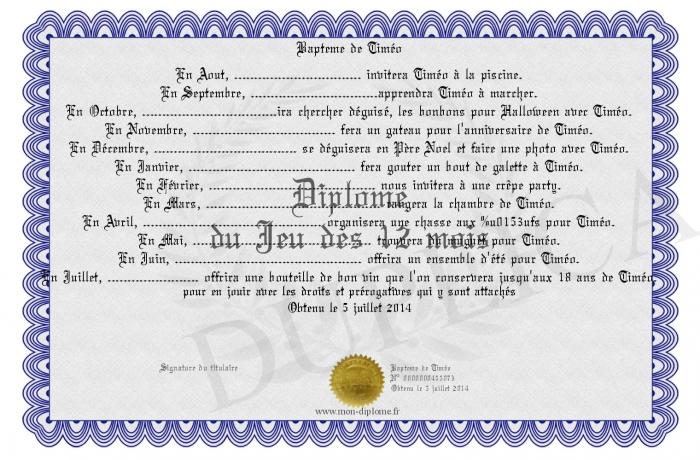 Bapteme de Timéo
En Aout, ................................ invitera Timéo à la piscine.
En Septembre, ................................apprendra Timéo à marcher.
En Octobre, ................................ira chercher déguisé, les bonbons pour Halloween avec Timéo.
En Novembre, ................................ fera un gateau pour l'anniversaire de Timéo.
En Décembre, ................................ se déguisera en Père Noel et faire une photo avec Timéo.
En Janvier, ................................ fera gouter un bout de galette à Timéo.
En Février, ................................ nous invitera à une crêpe party.
En Mars, ................................ rangera la chambre de Timéo.
Diplome
En Avril, ................................ organisera une chasse aux %u0153ufs pour Timéo.
En Mai, ................................ trouvera du muguet pour Timéo.
du Jeu des 12 mois
En Juin, ................................ offrira un ensemble d'été pour Timéo.
En Juillet, ........................ offrira une bouteille de bon vin que l'on conservera jusqu'aux 18 ans de Timéo,
pour en jouir avec les droits et prérogatives qui y sont attachés
Obtenu le 5 juillet 2014
DUPLICATA
Signature du titulaire
Bapteme de Timéo
Obtenu le 5 juillet 2014
www.mon-diplome.fr